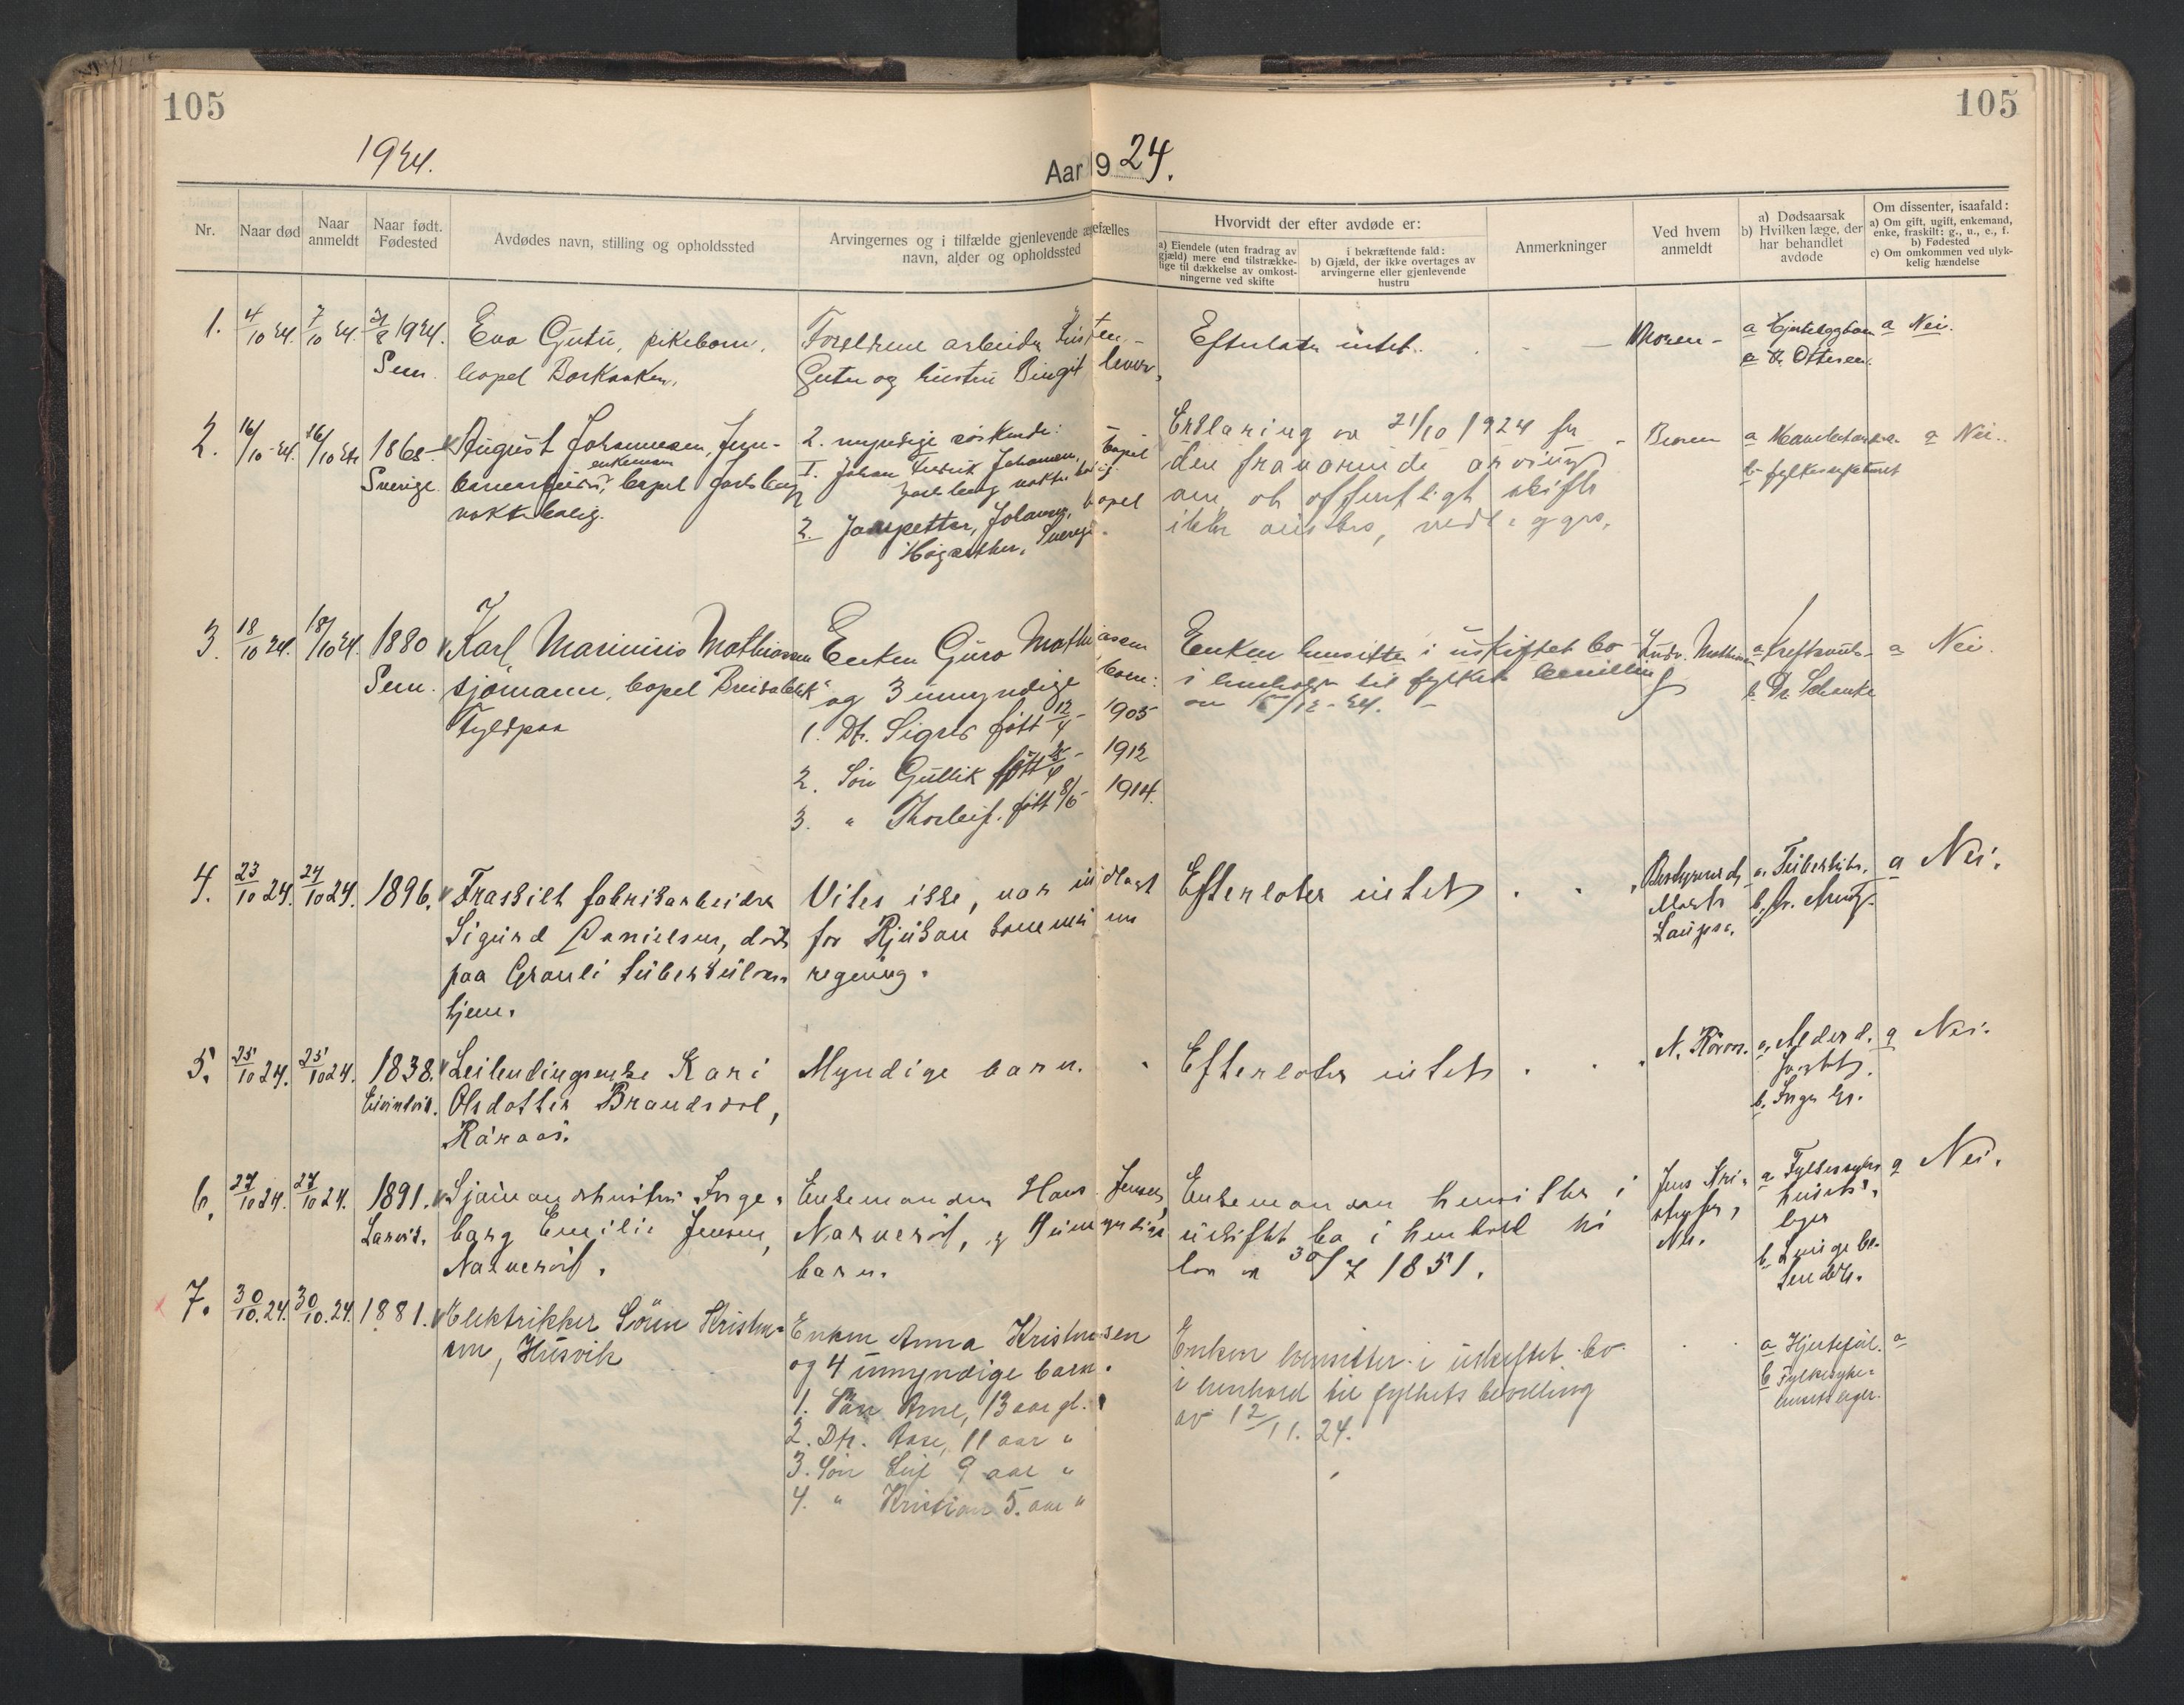 105
105
1924.
Aar 1924.
Nr.
Naar død
Naar anmeldt
Naar født. Fødested
Avdødes navn, stilling og opholdssted
Arvingernes og i tilfælde gjenlevende ægtefælles
navn, alder og opholdssted
Hvorvidt der efter avdøde er:
a) Eiendele (uten fradrag av
gjæld) mere end tilstrække-
lige til dækkelse av omkost-
ningerne ved skifte
i bekræftende fald:
b) Gjæld, der ikke overtages av
arvingerne eller gjenlevende
hustru
Anmerkninger
Ved hvem
anmeldt
a) Dødsaarsak
b) Hvilken læge, der
har behandlet
avdøde
Om dissenter, isaafald:
a) Om gift, ugift, enkemand,
enke, fraskilt: g., u., e., f.
b) Fødested
c) Om omkommen ved ulyk-
kelig hændelse
1. 4/10 24. 7/10 24. 1924.
Sem.
Eva Gutu, pikebarn,
bopel Barkaaker.
Forældrene arbeider
Gutu og hustru Birgit lever.
Efterlater intet.
Moren -
a Hjerteygdom
Dr. Ottesen.
a Nei.
2. 16/10 - 24. 16/10 24. 1868
Sverige
August Johannesen, Jern-
enkemann
bopel Jarlsberg
vokterbolig.
2 myndige søskende:
1. Johan Fredrik Johansen, bopel
Jarlsberg vokterbolig.
2. Johansen, bopel
Sverige.
Erklæring av 21/10 1924 fra
den fraværende arving
om at offentligt skifte
ikke ønskes, vedlægges.
a
b. fylkessykehuset
a Nei.
3. 18/10 24. 18/10 24. 1880
Sem.
Karl Marinius Mathiasen
sjømann, bopel "Breidablik"
Enken Guro Mathiasen
og 3 umyndige barn:
1. Dt. Sigrid født 12/4 - 1905
2. Søn Gullik født - 1912
3. " Thorleif. født 8/5 - 1914.
Enken hensitter i uskiftet bo
i henhold til fylkets bevilling
av /12 - 24. -
Ludv. Mathiasen
a Kreftsvulst
b. Dr. Schencke
a Nei.
4. 23/10 24. 24/10 24. 1896.
Fraskilt fabrikarbeider
Sigurd Danielsen, død
paa Grauli tuberkulose-
hjem.
Vites ikke, var indlagt
for Rjukan kommunes
regning.
Efterlater intet
Bestyrerinde
Laupsa.
a. Tuberkulose.
a Nei.
5. 25/10 24. 25/10 24. 1838.
Leilendingsenke Kari
Olsdatter Brandsdal,
Raraas.
Myndige barn.
Efterlater intet
a. Alderd.
b. Ingen læ.
a Nei.
6. 27/10 24. 27/10 24. 1891.
Larvik.
Sjømandshustru Inge-
borg Emilie Jensen,
Narverød.
Enkemanden Hans Jensen,
Narverød, og 9 umyndige
barn.
Enkemanden hensitter i
uskiftet bo i henhold til
lov av 30/7 1851.
Jens Kri-
a Fylkessyke-
husets
læger
a Nei.
7. 30/10. 24. 30/10. 24. 1881.
Elektrikker Sören Kristen-
sen, Husvik
Enken Anna Kristensen
og 4 umyndige barn.
1. Søn Arne, 13 aar gl.
2. Dt. Aase, 11 aar "
3. Søn Leif 9 aar "
4. " Kristian 5. aar "
Enken hensitter i uskiftet bo
i henhold til fylkets bevilling
av 12/11. 24.
a Hjertefeil.
b Fylkessyke-
husets læger.
a